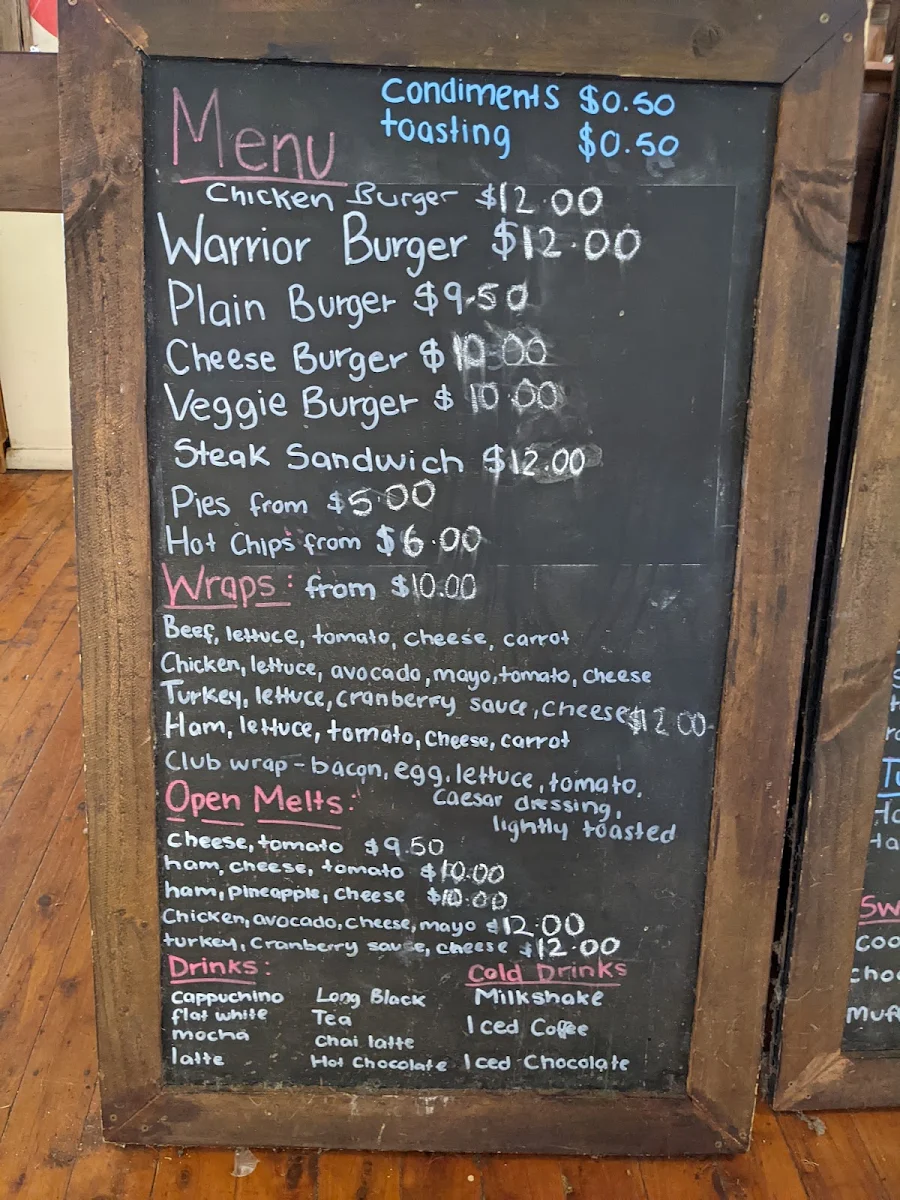 Menu
Condiments $0.50
toasting $0.50
Chicken Burger $12.00
Warrior Burger $12.00
Plain Burger $9.50
Cheese Burger $10.00
Veggie Burger $10.00
Steak Sandwich $12.00
Pies from $5.00
Hot Chips from $6.00
Wraps: from $10.00
Beef, lettuce, tomato, cheese, carrot
Chicken, lettuce, avocado, mayo, tomato, cheese
Turkey, lettuce, cranberry sauce, cheese $12.00
Ham, lettuce, tomato, cheese, carrot
Club wrap - bacon, egg, lettuce, tomato,
caesar dressing,
lightly toasted
Open Melts:
cheese, tomato $9.50
ham, cheese, tomato $10.00
ham, pineapple, cheese $10.00
Chicken, avocado, cheese, mayo $12.00
turkey, cranberry sauce, cheese $12.00
Drinks:
cappuchino Long Black
flat white Tea
mocha chai latte
latte Hot Chocolate
Cold Drinks
Milkshake
Iced Coffee
Iced Chocolate